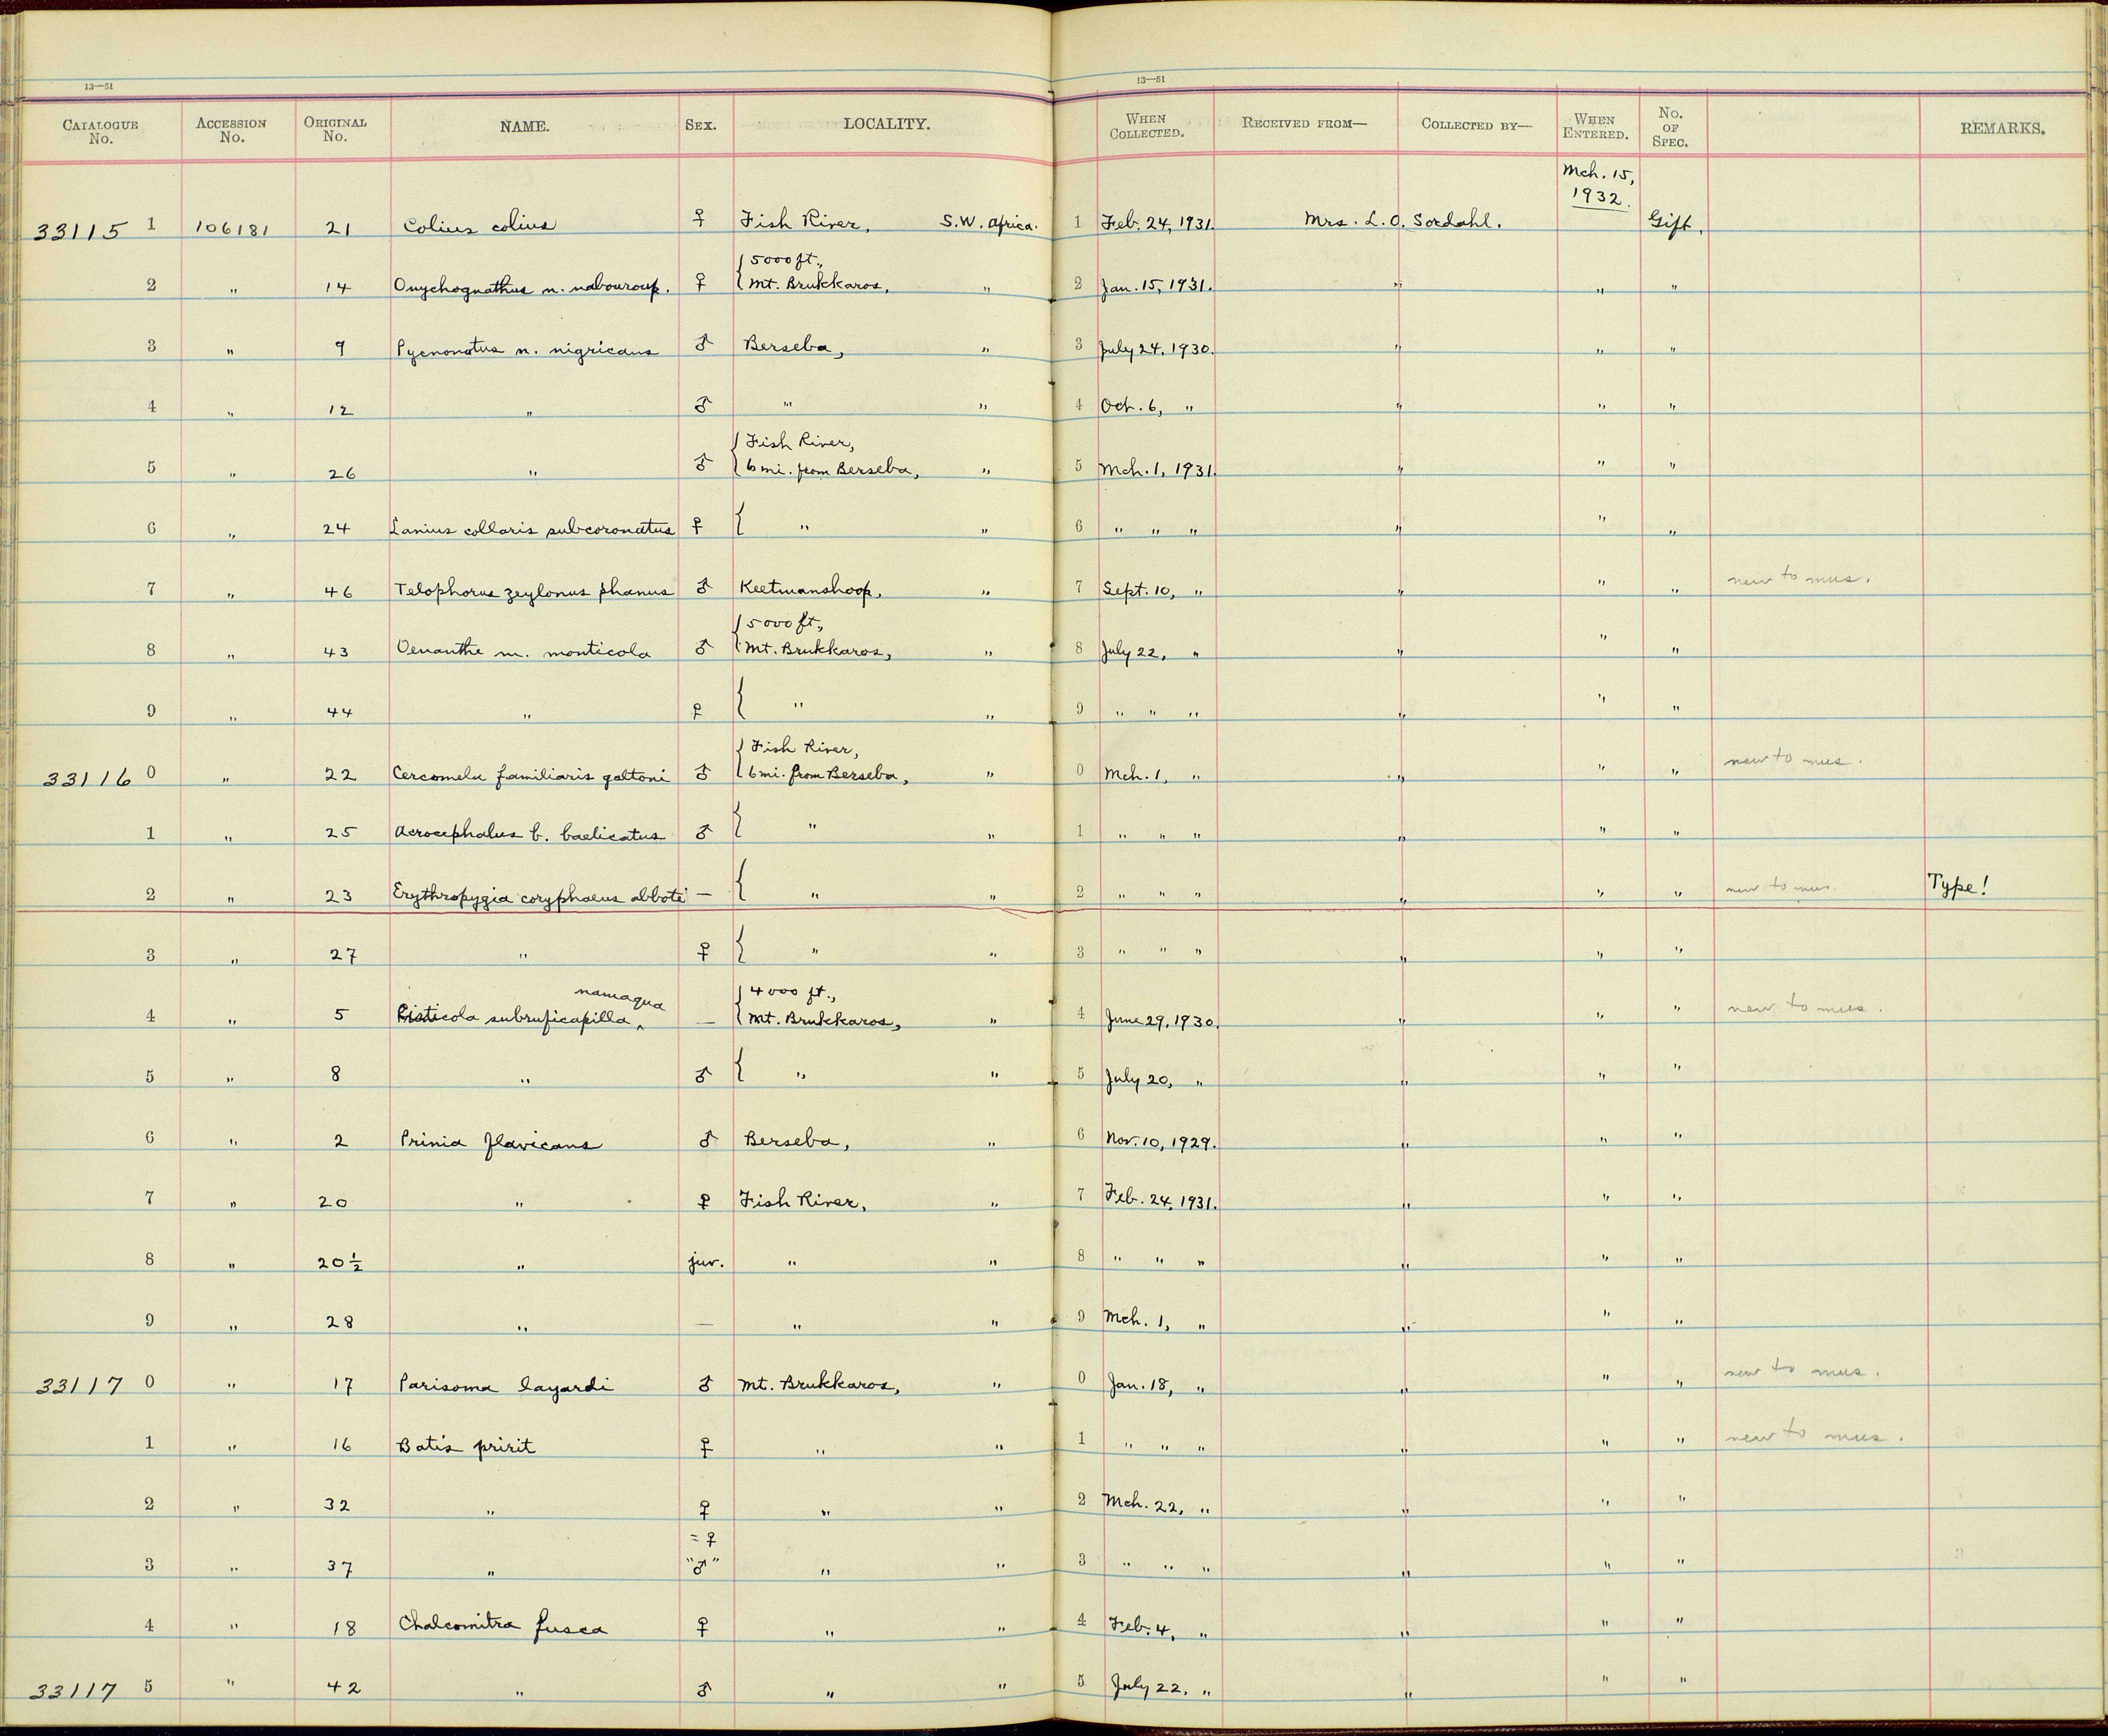 13—51 13—51
CATALOGUE No. ACCESSION No. ORIGINAL No. NAME. SEX. LOCALITY. WHEN COLLECTED. RECEIVED FROM— COLLECTED BY— WHEN ENTERED. No. OF SPEC. REMARKS.
Mch. 15,
1932.
33115 1 106181 21 Colius colius ♀ Fish River, S.W. Africa. 1 Feb. 24, 1931. Mrs. L. O. Sordahl. Gift.
{ 5000 ft.,
2 " 14 Onychognathus n. nabouroup. ♀ Mt. Brukkaros, " 2 Jan. 15, 1931. " " "
3 " 9 Pycnonotus n. nigricans ♂ Berseba, " 3 July 24, 1930. " " "
4 " 12 " ♂ " " 4 Oct. 6, " " " "
{ Fish River,
5 " 26 " ♂ 6 mi. from Berseba, " 5 Mch. 1, 1931. " " "
6 " 24 Lanius collaris subcoronatus ♀ { " " 6 " " " " " "
7 " 46 Telophorus zeylonus phanus ♂ Keetmanshoop, " 7 Sept. 10, " " " " new to mus.
{ 5000 ft.,
8 " 43 Oenanthe m. monticola ♂ Mt. Brukkaros, " 8 July 22, " " " "
9 " 44 " ♀ { " " 9 " " " " " "
{ Fish River,
33116 0 " 22 Cercomela familiaris galtoni ♂ 6 mi. from Berseba, " 0 Mch. 1, " " " " new to mus.
1 " 25 Acrocephalus b. baelicatus ♂ { " " 1 " " " " " "
2 " 23 Erythropygia coryphaeus abboti — { " " 2 " " " " " " new to mus. Type!
3 " 27 " ♀ { " " 3 " " " " " "
namaqua { 4000 ft.,
4 " 5 Cisticola subruficapilla ^ — Mt. Brukkaros, " 4 June 29, 1930. " " " new to mus.
5 " 8 " ♂ { " " 5 July 20, " " " "
6 " 2 Prinia flavicans ♂ Berseba, " 6 Nov. 10, 1929. " " "
7 " 20 " ♀ Fish River, " 7 Feb. 24, 1931. " " "
8 " 20 ½ " juv. " " 8 " " " " " "
9 " 28 " — " " 9 Mch. 1, " " " "
33117 0 " 17 Parisoma layardi ♂ Mt. Brukkaros, " 0 Jan. 18, " " " " new to mus.
1 " 16 Batis pririt ♀ " " 1 " " " " " " new to mus.
2 " 32 " ♀ " " 2 Mch. 22, " " " "
= ♀
3 " 37 " "♂" " " 3 " " " " " "
4 " 18 Chalcomitra fusca ♀ " " 4 Feb. 4, " " " "
33117 5 " 42 " ♂ " " 5 July 22, " " " "